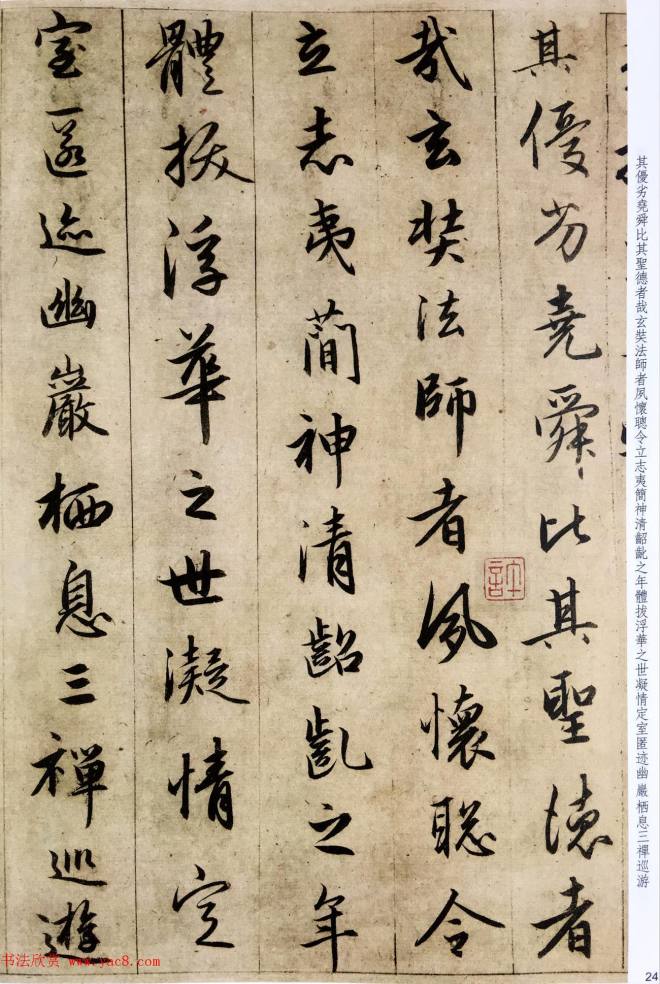 其優劣堯舜比其聖德者
哉玄奘法師者夙懷聰令
立志夷簡神清齠齔之年
體拔浮華之世凝情定
室匿迹幽巖栖息三禪巡遊
其優劣堯舜比其聖德者哉玄奘法師者夙懷聰令立志夷簡神清齠齔之年體拔浮華之世凝情定室匿迹幽 巖栖息三禪巡游
24
书法欣赏 www.yac8.com